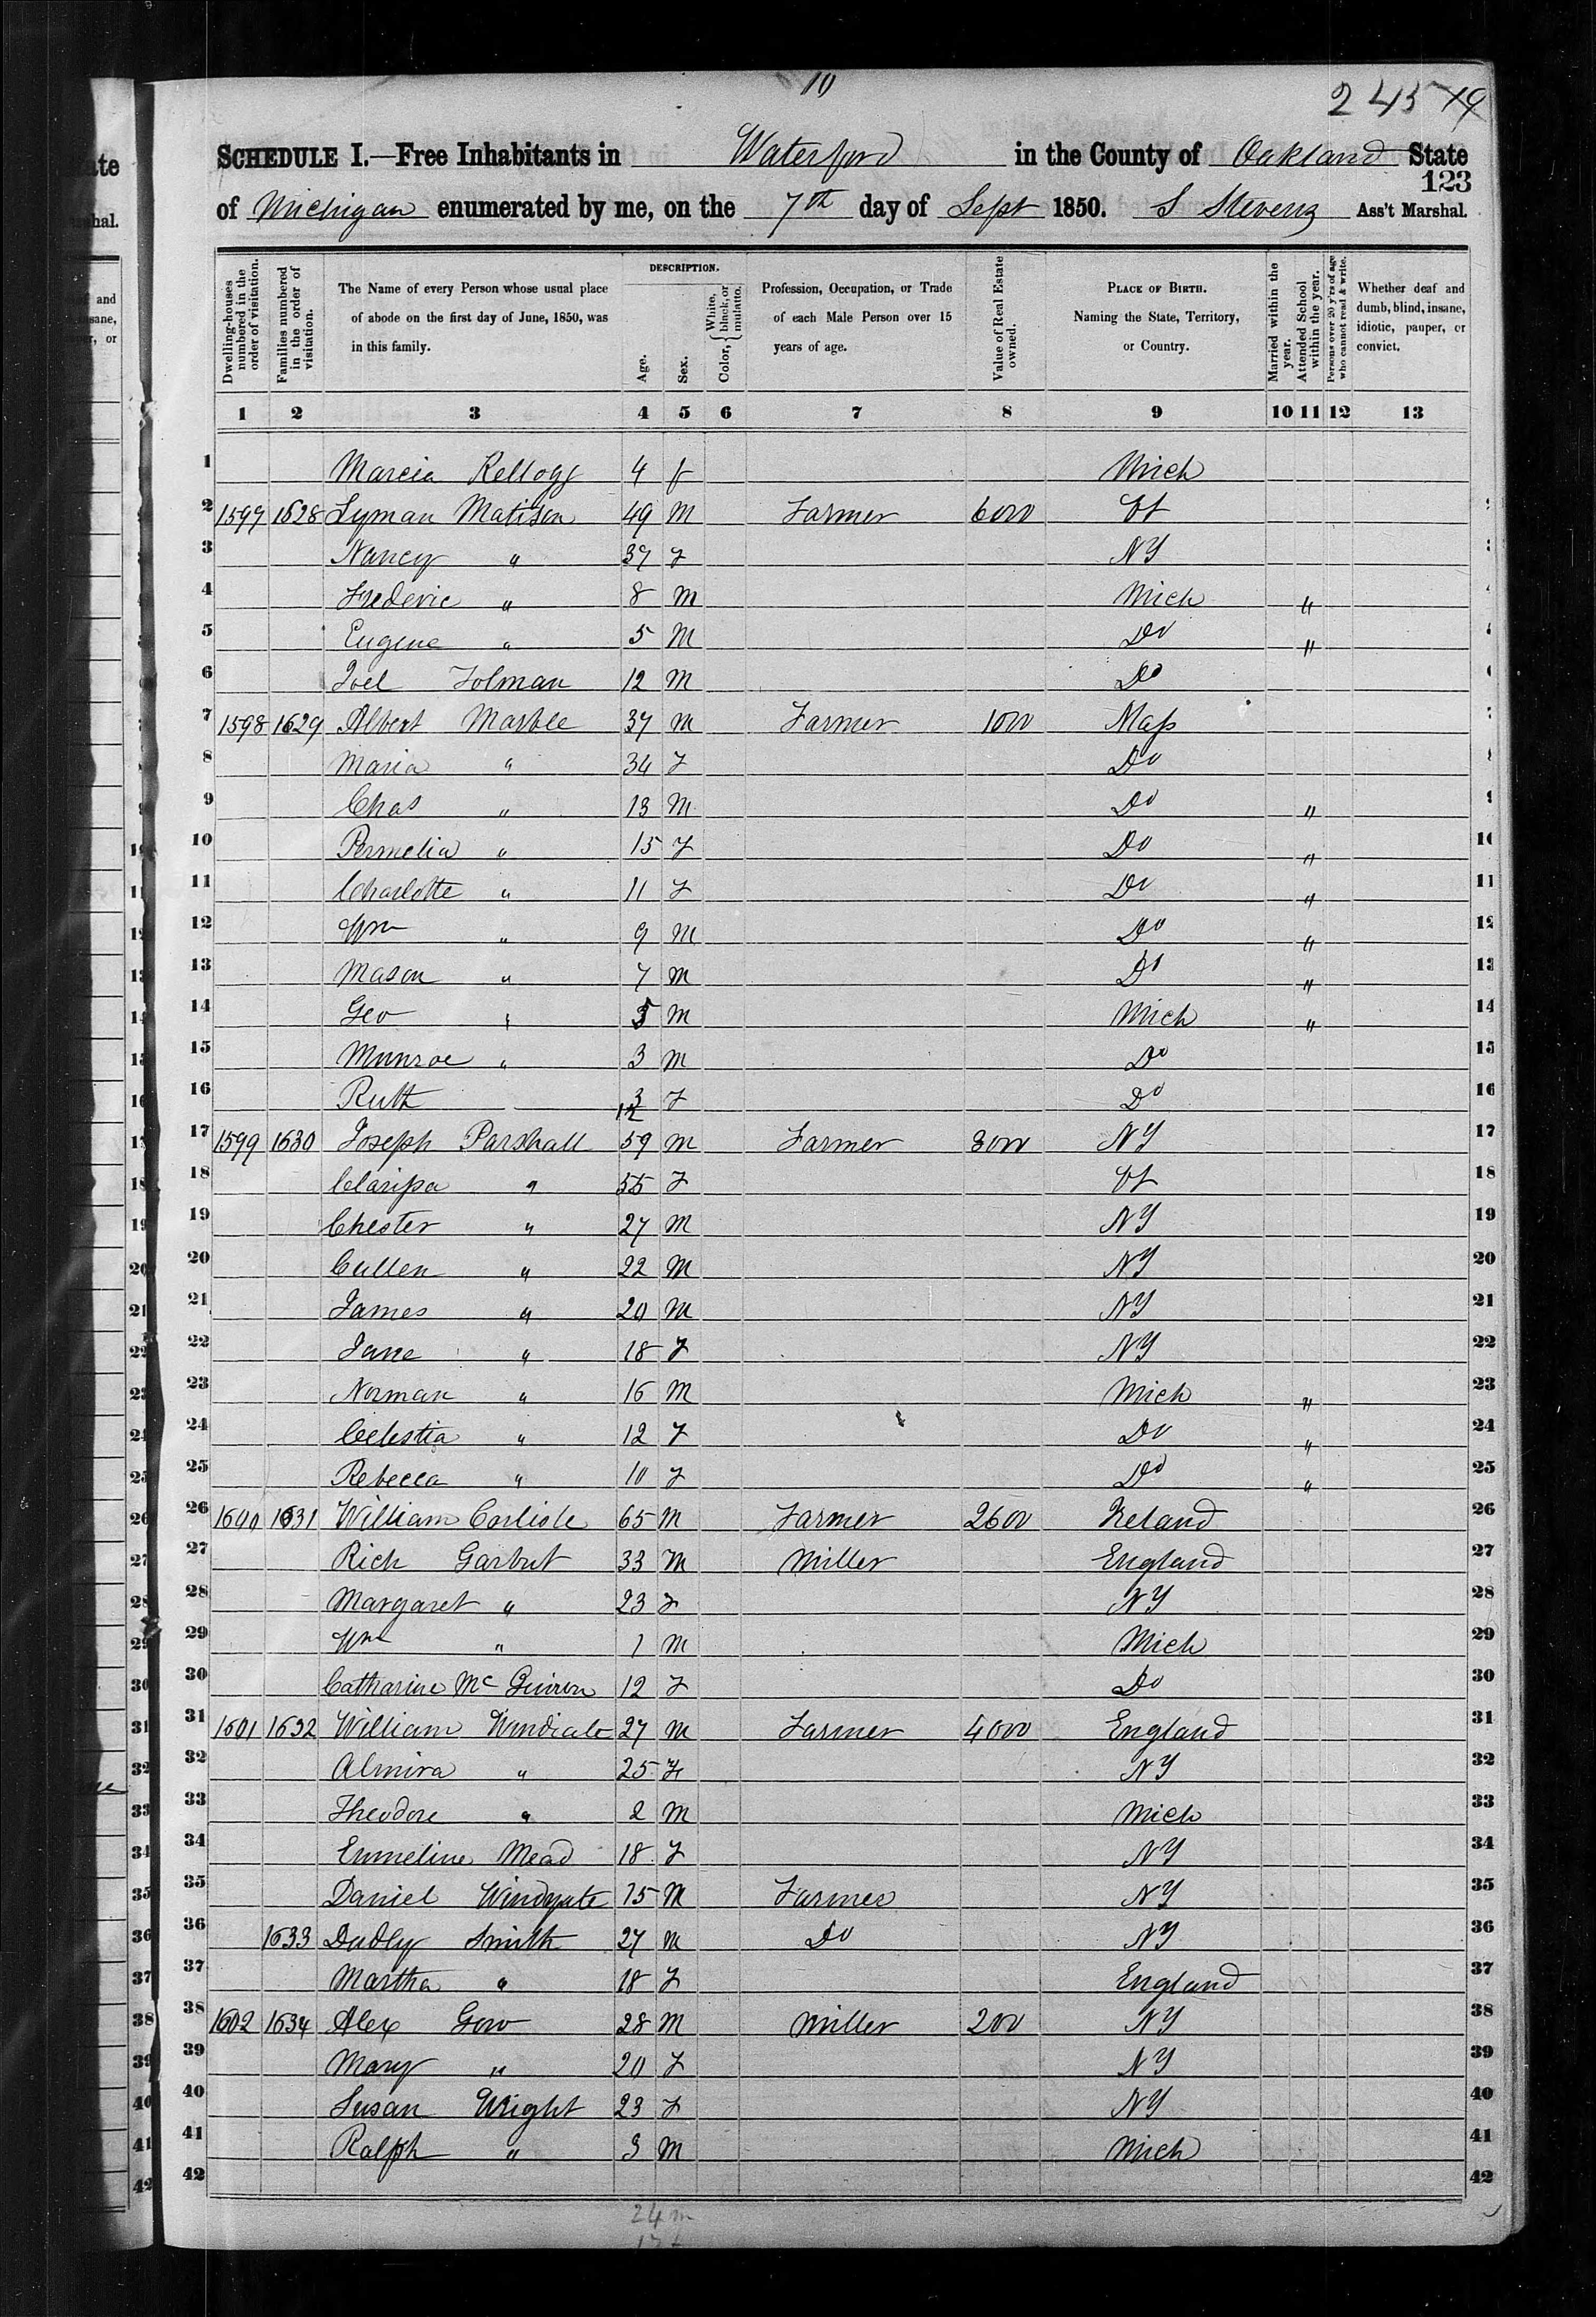 10
245 19
SCHEDULE I.—Free Inhabitants in Waterford in the County of Oakland State
123
of Michigan enumerated by me, on the 7th day of Sept 1850. S Stevens Ass't Marshal.
Dwelling-houses numbered in the order of visitation.
Families numbered in the order of visitation.
The Name of every Person whose usual place of abode on the first day of June, 1850, was in this family.
DESCRIPTION.
Age.
Sex.
Color, { White, black, or mulatto.
Profession, Occupation, or Trade of each Male Person over 15 years of age.
Value of Real Estate owned.
PLACE OF BIRTH. Naming the State, Territory, or Country.
Married within the year.
Attended School within the year.
Persons over 20 y'rs of age who cannot read & write.
Whether deaf and dumb, blind, insane, idiotic, pauper, or convict.
1 2 3 4 5 6 7 8 9 10 11 12 13
1 Marcia Kellogg 4 f Mich
2 1597 1628 Lyman Matison 49 M Farmer 6000 Vt
3 Nancy " 37 F NY
4 Frederic " 8 M Mich "
5 Eugene " 5 M Do "
6 Joel Tolman 12 M Do
7 1598 1629 Albert Marble 37 M Farmer 1000 Mass 7
8 Maria " 34 F Do
9 Chas " 13 M Do "
10 Permelia " 15 F Do " 10
11 Charlotte " 11 F Do " 11
12 Wm " 9 M Do " 12
13 Mason " 7 M Do " 13
14 Geo " 5 M Mich " 14
15 Munroe " 3 M Do 15
16 Ruth 3/12 F Do 16
17 1599 1630 Joseph Parshall 59 M Farmer 3000 NY 17
18 Clarissa " 55 F Vt 18
19 Chester " 27 M NY 19
20 Cullen " 22 M NY 20
21 James " 20 M NY 21
22 Jane " 18 F NY 22
23 Norman " 16 M Mich " 23
24 Celestia " 12 F Do " 24
25 Rebecca " 10 F Do " 25
26 1600 1631 William Carlisle 65 M Farmer 2600 Ireland 26
27 Rich Garbut 33 M Miller England 27
28 Margaret " 23 F NY 28
29 Wm " 1 M Mich 29
30 Catharine Mc 12 F Do 30
31 1601 1632 William 27 M Farmer 4000 England 31
32 Almira " 25 F NY 32
33 Theodore " 2 M Mich 33
34 Emmeline Mead 18 F NY 34
35 Daniel Windgate 15 M Farmer NY 35
36 1633 Dudly Smith 27 M Do NY 36
37 Martha " 18 F England 37
38 1602 1634 Alex Gow 28 M Miller 200 NY 38
39 Mary " 20 F NY 39
40 Susan Wright 23 F NY 40
41 Ralph " 3 M Mich 41
42 42
24 m
17 f